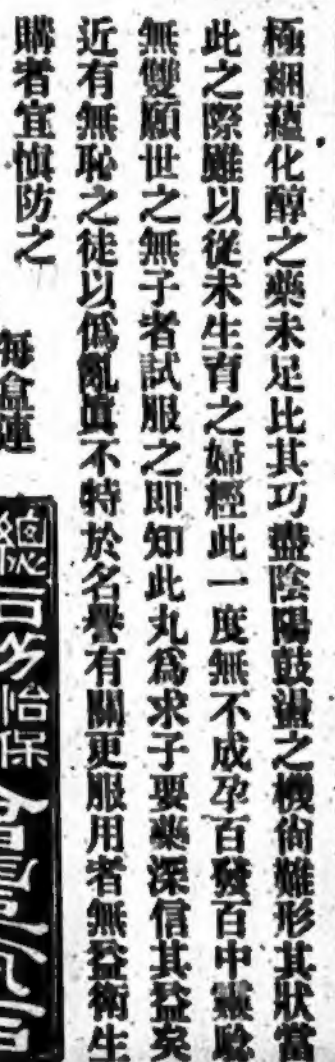 極絪蘊化醇之藥未足比其巧盡陰陽鼓盪之機尙難形其狀當
此之際雖以從未生育之婦經此一度無不成孕百發百中靈驗
無雙願世之無子者試服之即知此丸爲求子要藥深信其益矣
近有無恥之徒以僞亂眞不特於名譽有關更服用者無益衛生
購者宜愼防之
每盒連
總 怡保